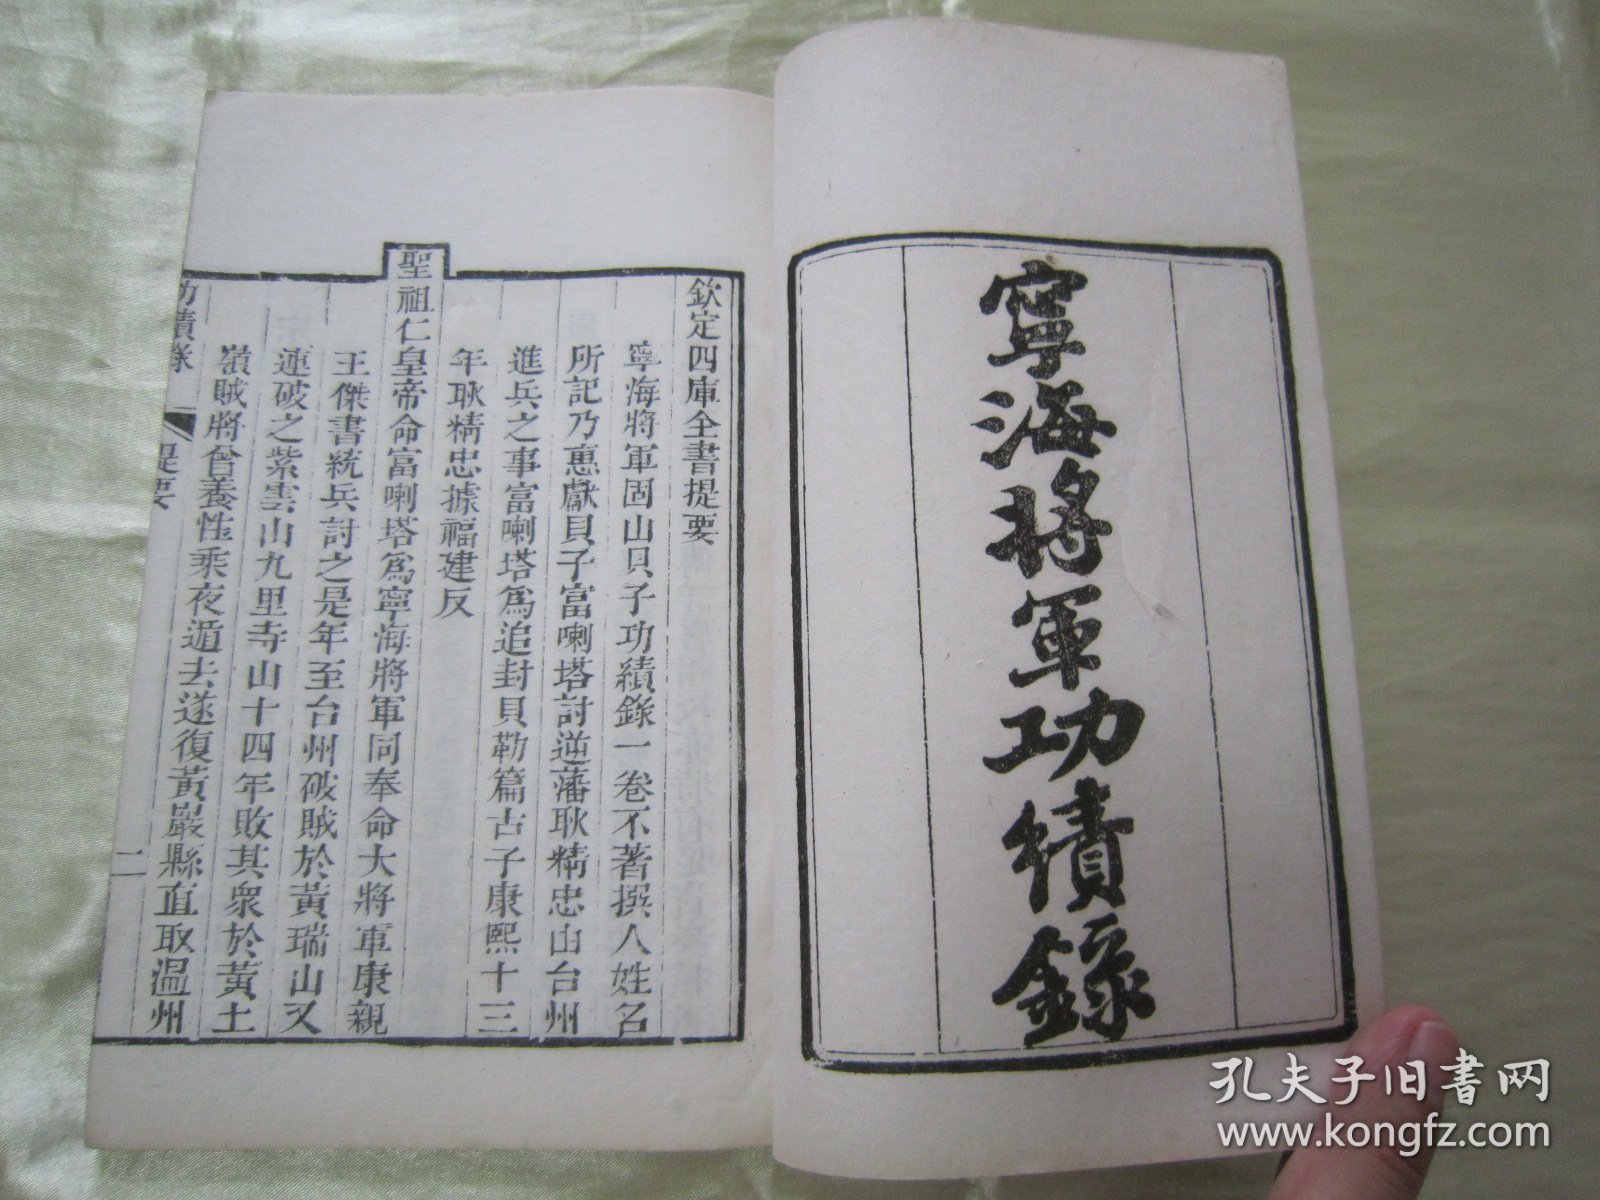 寧海將軍功績錄
欽定四庫全書提要
寧海將軍固山貝子功績錄一卷不著撰人姓名
所記乃惠獻貝子富喇塔討逆藩耿精忠由台州
進兵之事富喇塔爲追封貝勒篇古子康熙十三
年耿精忠據福建反
聖祖仁皇帝命富喇塔爲寧海將軍同奉命大將軍康親
王傑書統兵討之是年至台州破賊於黃瑞山又
連破之紫雲山九里寺山十四年敗其衆於黃土
嶺賊將曾養性乘夜遁去遂復黃巖縣直取溫州
功績錄
提要
二
孔夫子旧书网
www.kongfz.com